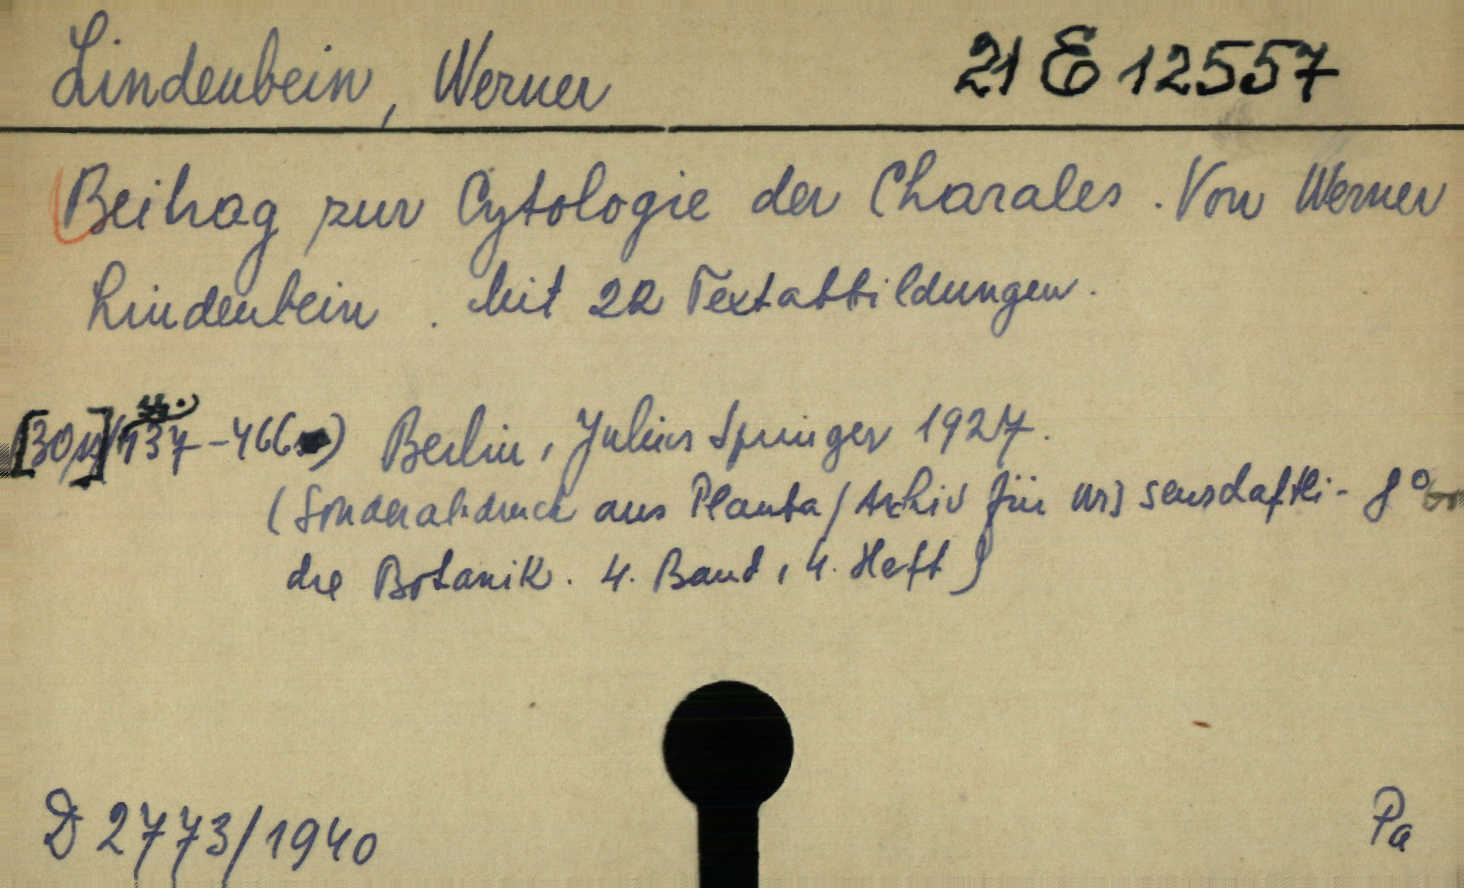 Lindenbein, Werner 21 E 12557
Beitrag zur Cytologie der Charales. Von Werner
Lindenbein. Mit 22 Textabbildungen.
437-466) Berlin, Julius Springer 1927.
(Sonderabdruck aus Planta / Archiv für wissenschaftli- 8°
che Botanik. 4. Band, 4. Heft)
D 2773/1940 Pa